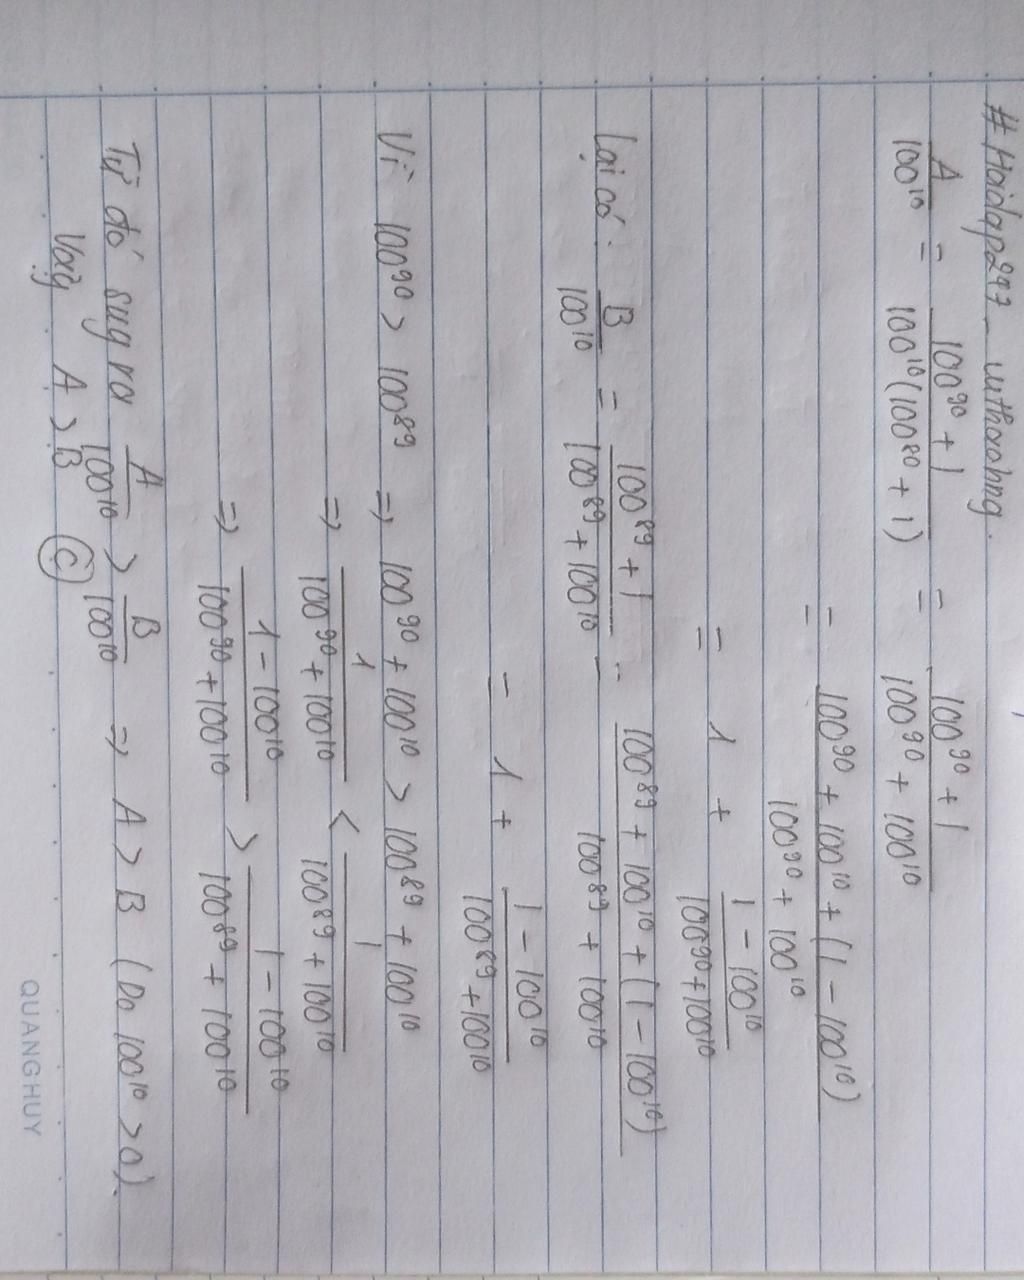 #Hoidap247 - withoahng.
A/100¹⁰ = (100⁹⁰ + 1)/(100¹⁰(100⁸⁰ + 1)) = (100⁹⁰ + 1)/(100⁹⁰ + 100¹⁰)
= (100⁹⁰ + 100¹⁰ + (1 - 100¹⁰))/(100⁹⁰ + 100¹⁰)
= 1 + (1 - 100¹⁰)/(100⁹⁰ + 100¹⁰)
Lại có: B/100¹⁰ = (100⁸⁹ + 1)/(100⁸⁹ + 100¹⁰) = (100⁸⁹ + 100¹⁰ + (1 - 100¹⁰))/(100⁸⁹ + 100¹⁰)
= 1 + (1 - 100¹⁰)/(100⁸⁹ + 100¹⁰)
Vì 100⁹⁰ > 100⁸⁹ => 100⁹⁰ + 100¹⁰ > 100⁸⁹ + 100¹⁰
=> 1/(100⁹⁰ + 100¹⁰) < 1/(100⁸⁹ + 100¹⁰)
=> (1 - 100¹⁰)/(100⁹⁰ + 100¹⁰) > (1 - 100¹⁰)/(100⁸⁹ + 100¹⁰)
Từ đó suy ra A/100¹⁰ > B/100¹⁰ => A > B (Do 100¹⁰ > 0).
Vậy A > B Ⓒ
QUANG HUY